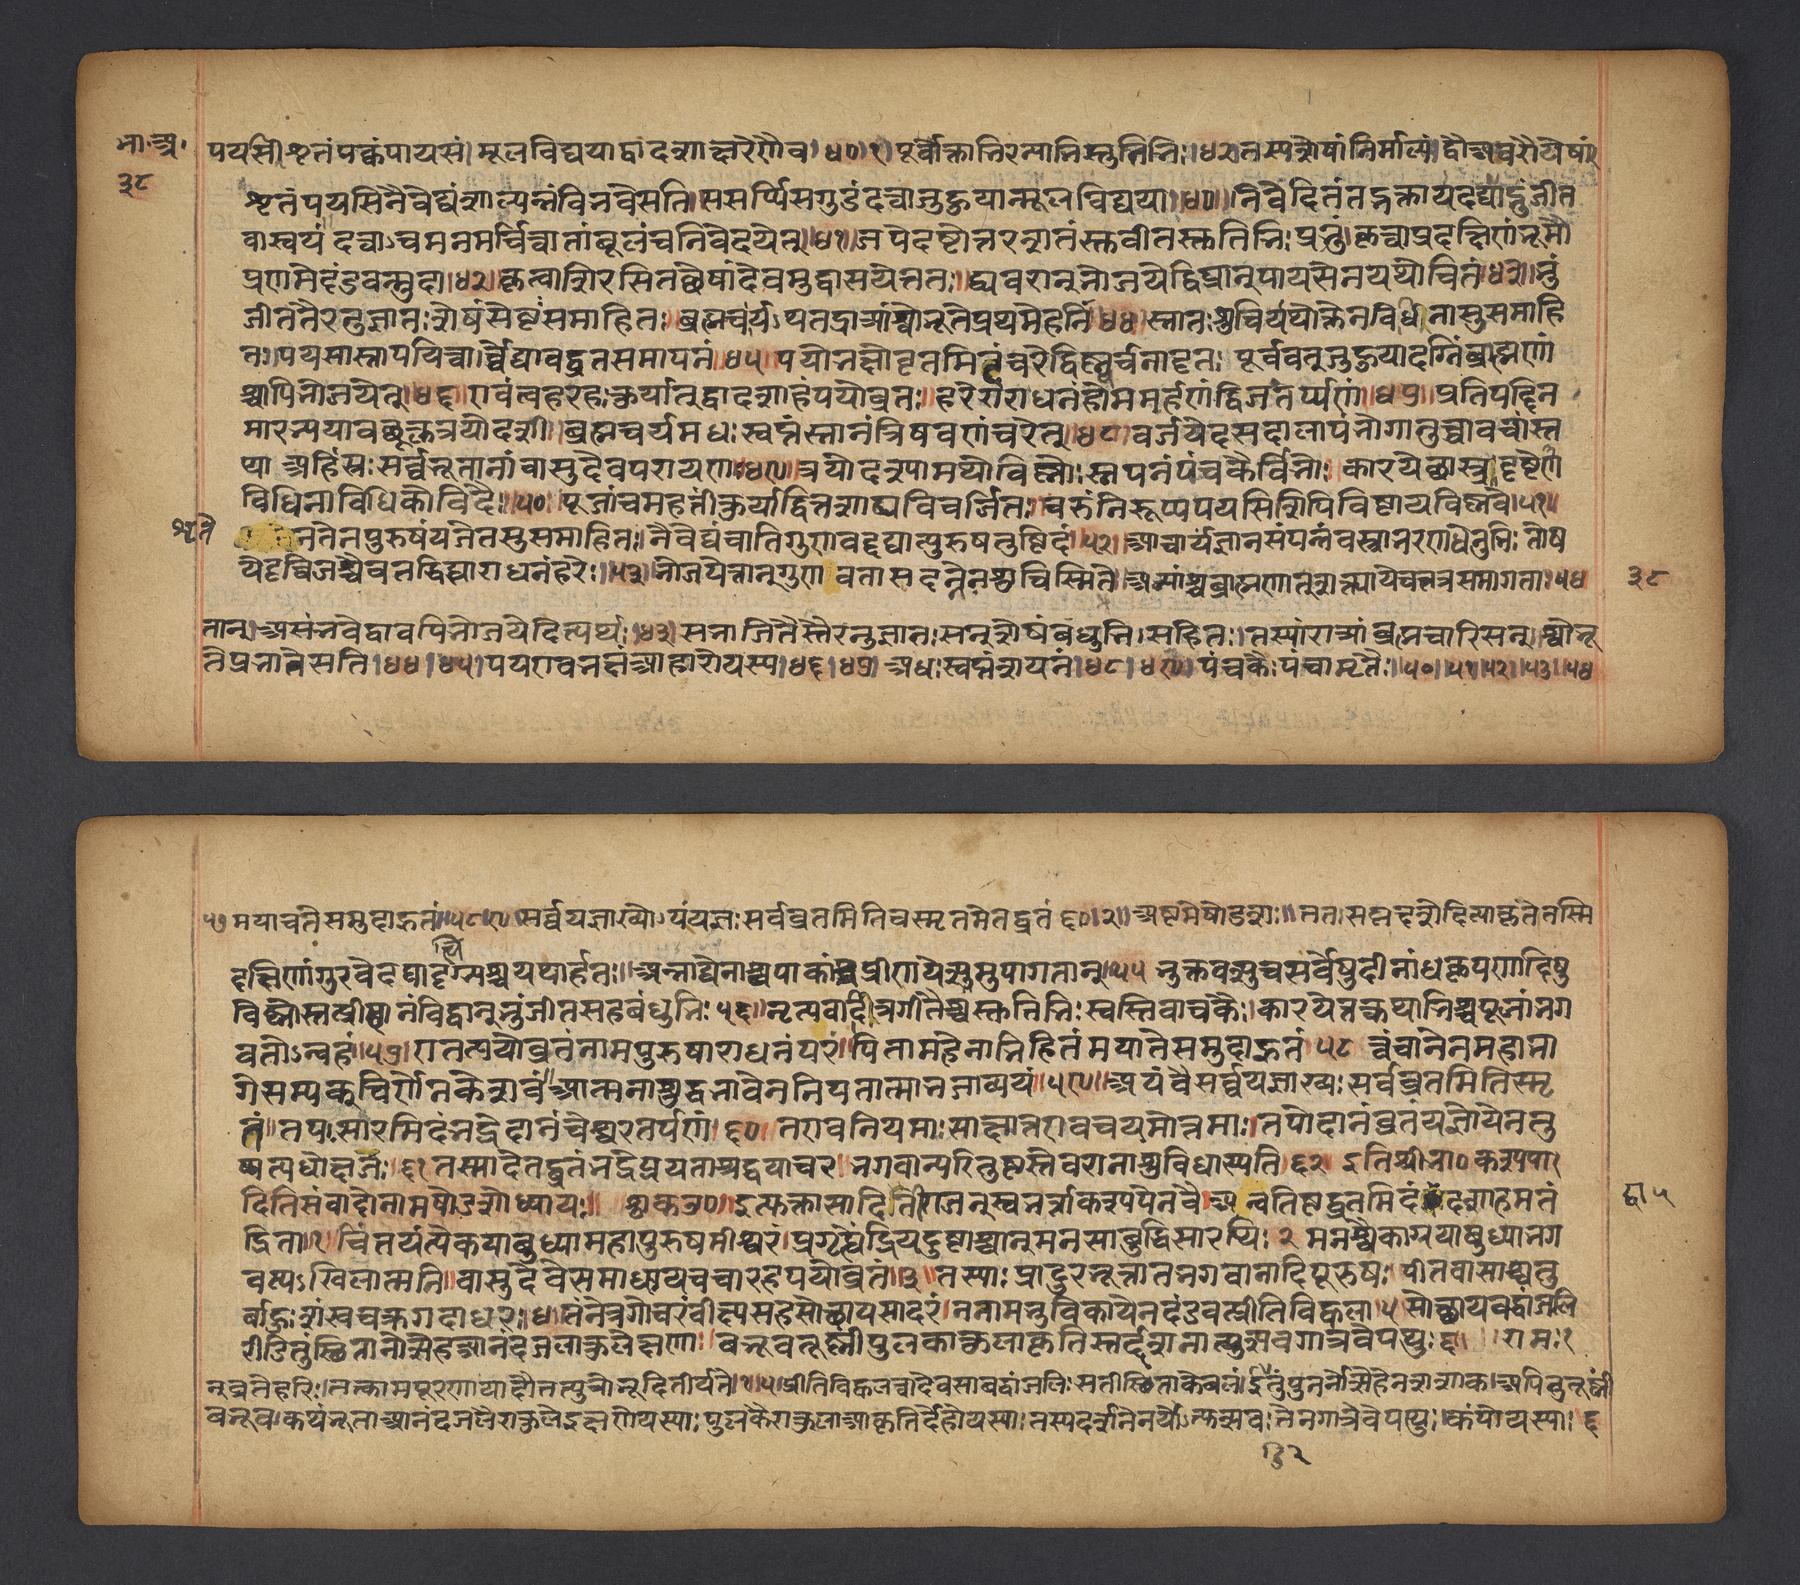 भा॰अ॰
३८
पयसि शृतं पक्वं पायसं। मूलविद्यया द्वादशाक्षरेणैव। ४०।१। पूर्वोक्ताभिरन्याभि स्तुतिभिः। ४२। तस्य शेषां निर्माल्यं। द्वौ अवरौ येषां
शृतं पयसि नैवेद्यं शाल्यन्नं विभवे सति। ससर्प्पि सगुडं दत्वा जुहुयान्मूलविद्यया। ४०। निवेदितं तद्भक्ताय दद्याद्भुंजीत
वा स्वयं दत्वाऽचमनमर्चित्वा तांबूलं च निवेदयेत्। ४१। जपेदष्टोत्तरशतं स्तवीत स्तुतिभिः प्रभुं। कृत्वा प्रदक्षिणं भूमौ
प्रणमेद्दंडवन्मुदा। ४२। कृत्वा शिरसि तच्छेषां देवमुद्वासयेत्ततः। द्व्यवरान् भोजयेद्विप्रान् पायसेन यथोचितं। ४३। भुं
जीत तैरनुज्ञातः शेषं सेष्टं समाहितः। ब्रह्मचर्यऽथ तद्रात्र्यां श्वोभूते प्रथमेहनि। ४४। स्नातः शुचिर्यथोक्तेन विधिना सुसमाहि
तः। पयसा स्नापयित्वार्च्चेद्यावद्व्रतसमापनं। ४५। पयोभक्षो व्रतमिदं चरेद्विष्ण्वर्चनादृतः। पूर्ववज्जुहुयादग्निं ब्राह्मणां
श्चापि भोजयेत्। ४६। एवं त्वहरहः कुर्यात् द्वादशाहं पयोव्रतः। हरेराराधनं होममर्हणं द्विजतर्प्पणं। ४७। प्रतिपद्दिन
मारभ्य यावच्छुक्लत्रयोदशी। ब्रह्मचर्यमधःस्वप्नं स्नानं त्रिषवणं चरेत्। ४८। वर्जयेदसदालापं भोगानुच्चावचांस्त
था। अहिंस्रः सर्व्वभूतानां वासुदेवपरायणः। ४९। त्रयोदश्यामथो विष्णोः स्नपनं पंचकैर्विभोः। कारयेच्छास्त्रदृष्टेन
विधिना विधिकोविदैः। ५०। पूजां च महतीं कुर्याद्वित्तशाठ्यविवर्जितः। चरुं निरूप्य पयसि शिपिविष्टाय विष्णवे। ५१।
शृते
न तेन पुरुषं यजेत सुसमाहितः। नैवेद्यं चातिगुणवद्दद्यात्पुरुषतुष्टिदं। ५२। आचार्यं ज्ञानसंपन्नं वस्त्राभरणधेनुभिः। तोष
येदृत्विजश्चैव तद्विद्ध्याराधनं हरेः। ५३। भोजयेत्तान् गुणवता सदन्नेन शुचिस्मिते। अन्यांश्च ब्राह्मणान् शक्त्या ये च तत्र समागताः। ५४
३८
तान्। असंभवे द्वावपि भोजयेदित्यर्थः। ४३। सभाजितैस्तैरनुज्ञातः सन् शेषं बंधुभिः सहितः। तस्यां रात्र्यां ब्रह्मचारि सन्। श्वोभू
ते प्रभाते सति। ४४। ४५। पय एव भक्षं आहारो यस्य। ४६। ४७। अधःस्वप्नं शयनं। ४८। ४९। पंचकैः पंचामृतैः। ५०। ५१। ५२। ५३। ५४
५७ मया च ते समुदाहृतं। ५८। ५९। सर्व्वयज्ञाख्योऽयं यज्ञः सर्वव्रतमिति च स्मृतमेतद्व्रतं ६०।२। अष्टमे षोडशः।। ततः सप्तदशे दित्या कृते तस्मि
दक्षिणां गुरवे दद्यादृत्विग्भ्यश्च यथार्हतः। अन्नाद्येनाश्वपाकांश्च प्रीणयेत्समुपागतान्। ५५ भुक्तवत्सु च सर्वेषु दीनांधकृपणादिषु
विष्णोस्तत्प्रीणनं विद्वान् भुंजीत सह बंधुभिः ५६। नृत्यवादित्रगीतैश्च स्तुतिभिः स्वस्तिवाचकैः। कारयेत्तत्कथाभिश्च पूजां भग
वतोऽन्वहं। ५७। एतत्पयोव्रतं नाम पुरुषाराधनं परं। पितामहेनाभिहितं मया ते समुदाहृतं ५८ त्वं चानेन महाभा
गे सम्यक् चीर्णेन केशवं। आत्मना शुद्धभावेन नियतात्मा भजाव्ययं। ५९। अयं वै सर्व्वयज्ञाख्यः सर्वव्रतमिति स्मृ
तं। तपःसारमिदं भद्रे दानं चेश्वरतर्पणं। ६०। त एव नियमाः साक्षात्त एव च यमोत्तमाः। तपो दानं व्रतं यज्ञो येन तु
ष्यत्यधोक्षजः। ६१ तस्मादेतद्व्रतं भद्रे प्रयता श्रद्धयाचर। भगवान् परितुष्टस्ते वरानाशु विधास्यति ६२ इति श्रीभा॰ कश्यपा
दितिसंवादो नाम षोडशोध्यायः।। श्रीशुक उ॰। इत्युक्ता सादिती राजन् स्वभर्त्रा कश्यपेन वै। अन्वतिष्ठद्व्रतमिदं द्वादशाहमतं
द्वा ५
द्रिता।१ चिंतयंत्येकया बुध्या महापुरुषमीश्वरं। प्रगृह्येंद्रियदुष्टाश्वान् मनसा बुद्धिसारथिः २ मनश्चैकाग्रया बुध्या भग
वत्यऽखिलात्मनि। वासुदेवे समाधाय चचार ह पयोव्रतं।३ तस्याः प्रादुरभूत्तात भगवानादिपूरुषः। पीतवासाश्चतु
र्बाहुः शंखचक्रगदाधरः।४। तं नेत्रगोचरं वीक्ष्य सहसोत्थाय सादरं। ननाम भुवि कायेन दंडवत्प्रीतिविह्वला।५ सोत्थाय बद्धांजलि
रीडितुं स्थिता नोत्सेह आनंदजलाकुलेक्षणा। बभूव तूष्णीं पुलकाकुलाकृतिस्तद्दर्शनात्युत्सवगात्रवेपथुः।६। राम १
न् व्रते हरिः। तत्कामपूरणायादौ तत्पुत्रोभूदितीर्यते।१।५। प्रीतिविह्वलत्वादेव सा बद्धांजलिः सती स्थिता केवलं। ईडितुं पुनर्नोत्सेहे न शशाक। अपि तु तूष्णीं
बभूव। कथंभूता आनंदजलैराकुले ईक्षणे यस्याः। पुलकैराकुला आकृतिर्देहो यस्याः। तस्य दर्शनेन योऽत्युत्सवः तेन गात्रे वेपथुः कंपो यस्याः ६